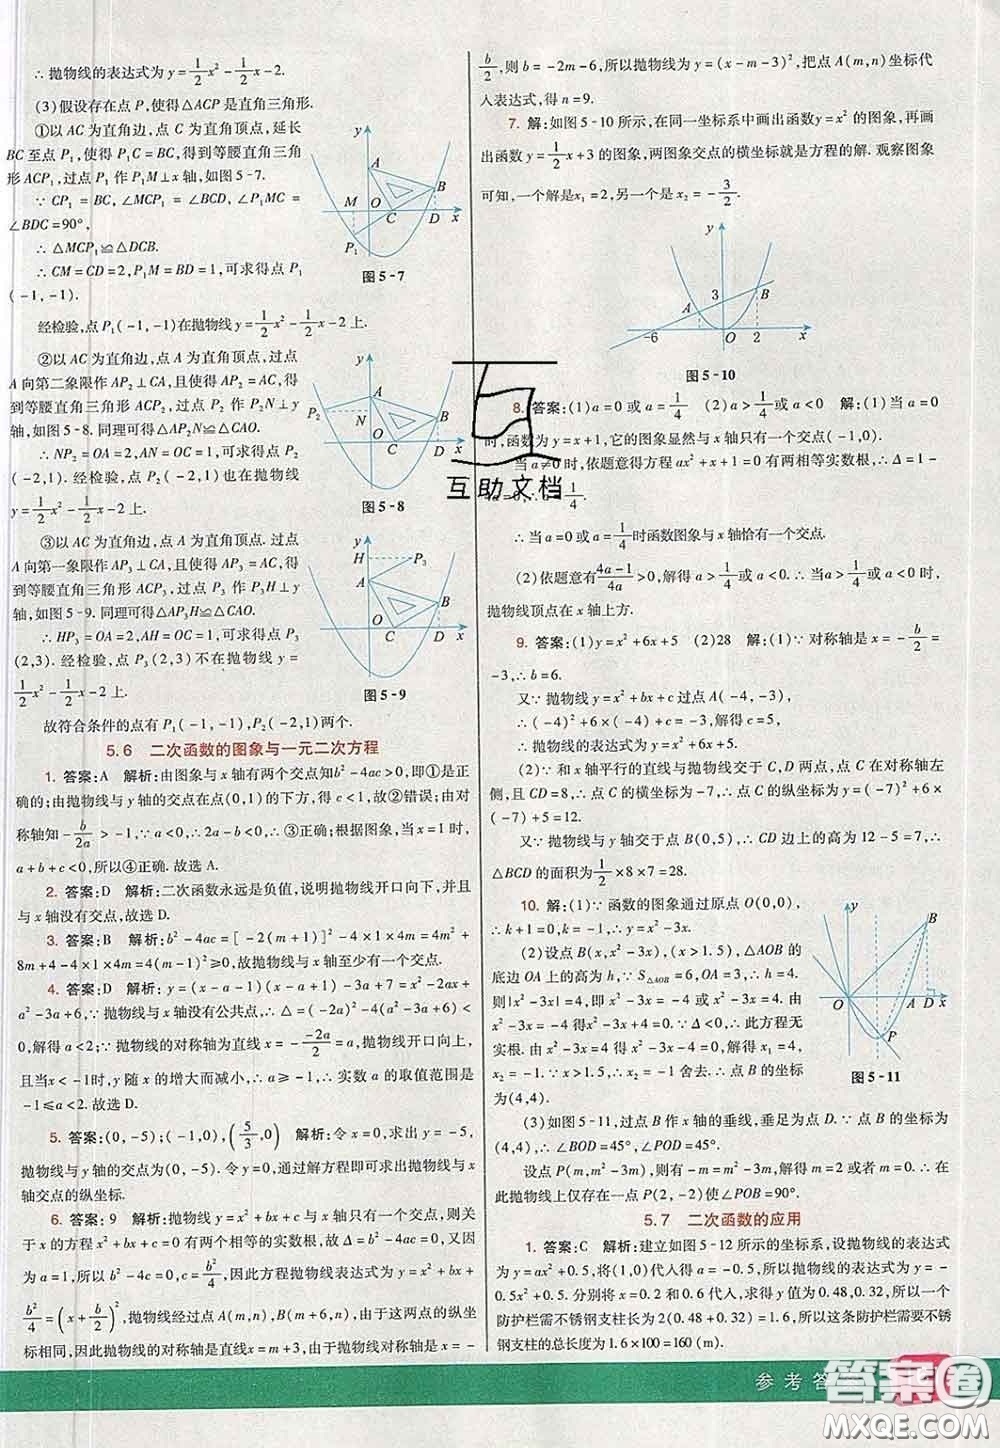 ∴ 抛物线的表达式为 y=1/2x²-1/2x-2.
(3)假设存在点 P,使得△ACP 是直角三角形.
①以 AC 为直角边,点 C 为直角顶点,延长
BC 至点 P₁,使得 P₁C=BC,得到等腰直角三角
形 ACP₁,过点 P₁ 作 P₁M⊥x 轴,如图 5-7.
∵ CP₁=BC, ∠MCP₁=∠BCD, ∠P₁MC=
∠BDC=90°,
∴ △MCP₁≌△DCB.
∴ CM=CD=2,P₁M=BD=1,可求得点 P₁
(-1,-1).
经检验,点 P₁(-1,-1)在抛物线 y=1/2x²-1/2x-2 上.
y
A
B
M
O
C
D
x
P₁
图 5-7
②以 AC 为直角边,点 A 为直角顶点,过点
A 向第二象限作 AP₂⊥CA,且使得 AP₂=AC,
得到等腰直角三角形 ACP₂,过点 P₂ 作 P₂N⊥y
轴,如图 5-8.同理可得△AP₂N≌△CAO.
∴ NP₂=OA=2,AN=OC=1,可求得点 P₂
(-2,1). 经检验,点 P₂(-2,1)在抛物线
y=1/2x²-1/2x-2 上.
y
A
P₂
N
B
O
C
D
x
图 5-8
③以 AC 为直角边,点 A 为直角顶点,过点
A 向第一象限作 AP₃⊥CA,且使得 AP₃=AC,
得到等腰直角三角形 ACP₃,过点 P₃ 作 P₃H⊥y
轴,如图 5-9.同理可得△AP₃H≌△CAO.
∴ HP₃=OA=2,AH=OC=1,可求得点 P₃
(2,3). 经检验,点 P₃(2,3)不在抛物线 y=
1/2x²-1/2x-2 上.
y
H
P₃
A
B
O
C
D
x
图 5-9
故符合条件的点有 P₁(-1,-1),P₂(-2,1)两个.
5.6 二次函数的图象与一元二次方程
1. 答案:A 解析:由图象与 x 轴有两个交点知b²-4ac>0,即①是正
确的;由抛物线与 y 轴的交点在点(0,1)的下方,得 c<1,故②错误;由对
称轴知-b/2a>-1,∵ a<0,∴ 2a-b<0,∴ ③正确;根据图象,当 x=1 时,
a+b+c<0,所以④正确.故选 A.
2. 答案:D 解析:二次函数永远是负值,说明抛物线开口向下,并且
与 x 轴没有交点,故选 D.
3. 答案:B 解析:b²-4ac=[-2(m+1)]²-4×1×4m=4m²+
8m+4-4×1×4m=4(m-1)²≥0,故抛物线与 x 轴至少有一个交点.
4. 答案:D 解析:y=(x-a-1)(x-a+1)-3a+7=x²-2ax+
a²-3a+6,∵ 抛物线与 x 轴没有公共点,∴ △=(-2a)²-4(a²-3a+6)<
0,解得 a<2;∵ 抛物线的对称轴为直线 x=--2a/2=a,抛物线开口向上,
且当x<-1时,y 随 x 的增大而减小,∴ a≥-1,∴ 实数 a 的取值范围是
-1≤a<2.故选 D.
5. 答案:(0,-5);(-1,0),(5/3,0) 解析:令 x=0,求出 y=-5,
抛物线与 y 轴的交点为(0,-5).令 y=0,通过解方程即可求出抛物线与 x
轴交点的纵坐标.
6. 答案:9 解析:抛物线 y=x²+bx+c 与 x 轴只有一个交点,则关
于 x 的方程 x²+bx+c=0 有两个相等的实数根,所以 △=b²-4ac=0. 又
a=1,所以 b²-4c=0, c=b²/4,因此方程抛物线表达式为 y=x²+bx+
b²/4=(x+b/2)²,抛物线经过点 A(m,n),B(m+6,n),由于这两点的纵坐
标相同,因此抛物线的对称轴为直线x=m+3,所以抛物线为直线 x=-
b/2,则 b=-2m-6,所以抛物线为 y=(x-m-3)²,把点 A(m,n)坐标代
入表达式,得 n=9.
7. 解:如图 5-10 所示,在同一坐标系中画出函数y=x² 的图象,再画
出函数 y=1/2x+3 的图象,两图象交点的横坐标就是方程的解.观察图象
可知,一个解是x₁=2,另一个是 x₂=-3/2.
y
3
A
B
-6
O
2
x
图 5-10
8. 答案:(1)a=0 或 a=1/4 (2)a>1/4 或 a<0 解:(1)当 a=0
时,函数为 y=x+1,它的图象显然与 x 轴只有一个交点(-1,0).
当 a≠0 时,依题意得方程 ax²+x+1=0 有两相等实数根,∴ △=1-
4a=0,∴ a=1/4.
∴ 当 a=0 或 a=1/4时函数图象与 x 轴恰有一个交点.
(2)依题意有4a-1/4a>0,解得 a>1/4或 a<0,∴ 当 a>1/4或 a<0 时,
抛物线顶点在 x 轴上方.
9. 答案:(1)y=x²+6x+5 (2)28 解:(1)∵ 对称轴是 x=-b/2=
-3,∴ b=6.
又∵ 抛物线 y=x²+bx+c 过点 A(-4,-3),
∴ (-4)²+6×(-4)+c=-3. 解得 c=5,
∴ 抛物线的表达式为 y=x²+6x+5.
(2)∵ 和 x 轴平行的直线与抛物线交于 C,D 两点,点 C 在对称轴左
侧,且 CD=8,∴ 点 C 的横坐标为-7,∴ 点 C 的纵坐标为(-7)²+6×
(-7)+5=12.
又∵ 抛物线与 y 轴交于点 B(0,5),∴ CD 边上的高为 12-5=7,∴
△BCD 的面积为1/2×8×7=28.
10. 解:(1)∵ 函数的图象通过原点 O(0,0),
∴ k+1=0,k=-1,∴ y=x²-3x.
(2)设点 B(x,x²-3x),(x>1.5),△AOB 的
底边 OA 上的高为 h,∵ S△AOB=6,OA=3,∴ h=4,
则|x²-3x|=4. 当 x²-3x=-4 时,得出
x²-3x+4=0. ∵ △=9-4×4=-7<0,∴ 此方程无
实根. 由 x²-3x=4,得 x²-3x-4=0,解得 x₁=4,
x₂=-1. ∵ x>1.5,∴ x=4,∴ 点 B 的坐标为
(4,4).
y
B
O
A
D
x
P
图 5-11
(3)如图 5-11,过点 B 作 x 轴的垂线,垂足为点 D.∵ 点 B 的坐标为
(4,4),∴ ∠BOD=45°,∠BOP=90°,∴ ∠POD=45°.
设点 P(m,m²-3m),则有-m=m²-3m,解得 m=2 或 m=0,∴ 在
此抛物线上仅存在一点 P(2,-2)使∠POB=90°.
5.7 二次函数的应用
1. 答案:C 解析:建立如图 5-12 所示的坐标系,设抛物线的表达式
为 y=ax²+0.5,将(1,0)代入得 a=-0.5,所以抛物线的表达式为 y=-
0.5x²+0.5. 分别将 x=0.2 和 0.6 代入,求得 y 值为 0.48,0.32,所以一个
防护栏需不锈钢支柱长为 2(0.48+0.32)=1.6,所以这条防护栏需要不锈
钢支柱的总长度为 1.6×100=160(m).
互助文档
参考答案
答案圈
MXQE.COM